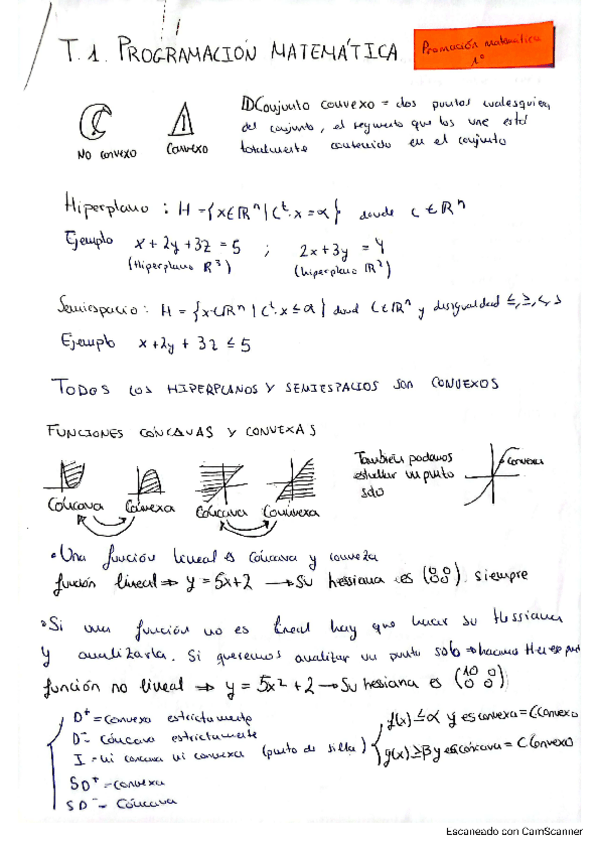 T.1. PROGRAMACIÓN MATEMÁTICA
Promoción matemática
1º
Conjunto convexo = dos puntos cualesquiera
del conjunto, el segmento que los une está
totalmente contenido en el conjunto
No convexo
Convexo
Hiperplano : H = {x∈ℝⁿ | Cᵗ·x = α} donde C ∈ ℝⁿ
Ejemplo x + 2y + 3z = 5 ; 2x + 3y = 4
(Hiperplano ℝ³) (hiperplano ℝ²)
Semiespacio : H = {x∈ℝⁿ | Cᵗ·x ≤ α} dond C∈ℝⁿ y desigualdad ≤, ≥, <, >
Ejemplo x + 2y + 3z ≤ 5
TODOS LOS HIPERPLANOS Y SEMIESPACIOS SON CONVEXOS
FUNCIONES CÓNCAVAS Y CONVEXAS
También podemos
estudiar un punto
solo
convexa
Cóncava Convexa Cóncava Convexa
• Una función lineal es cóncava y convexa
función lineal ⇒ y = 5x+2 → Su hessiana es (0 0 0 0) siempre
• Si una función no es lineal hay que hacer su Hessiana
y analizarla. Si queremos analizar un punto solo ⇒ hacemos H en ese punt
función no lineal ⇒ y = 5x² + 2 → Su hessiana es (10 0 0 0)
D⁺ = Convexa estrictamente
D⁻ = Cóncava estrictamente
I = ni concava ni convexa (punto de silla)
SD⁺ = convexa
SD⁻ = Cóncava
f(x) ≤ α y es convexa = C Convexo
g(x) ≥ β y es cóncava = C Convexo
Escaneado con CamScanner